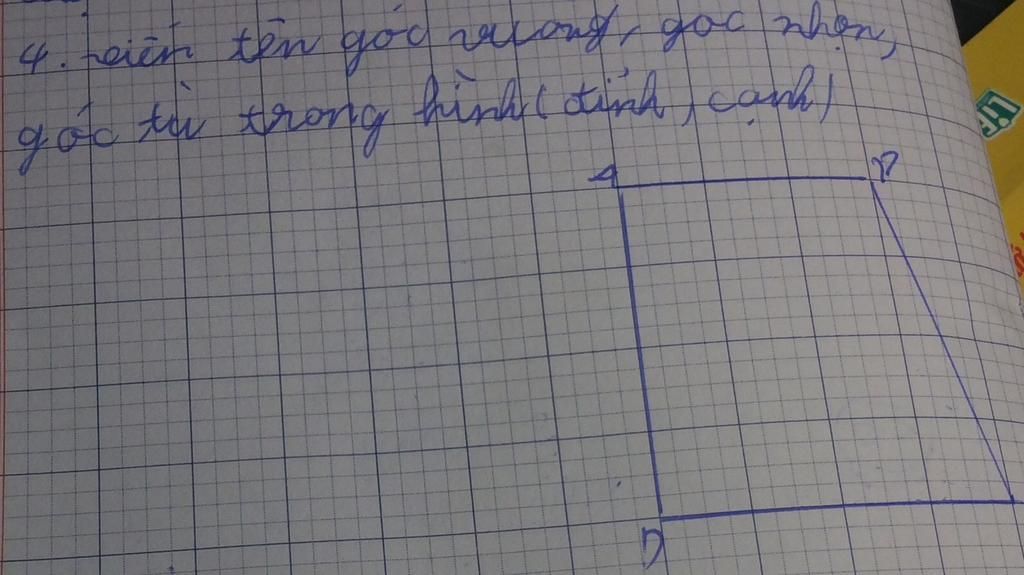 4. tên góc vuông, góc nhọn,
góc tù trong hình (đỉnh, cạnh)
A
B
D